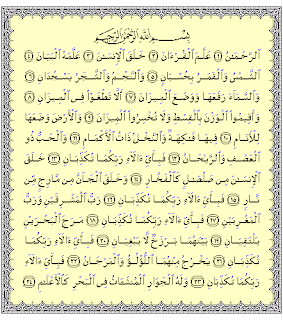 بِسْمِ اللَّهِ الرَّحْمَٰنِ الرَّحِيمِ
ٱلرَّحْمَٰنُ ١ عَلَّمَ ٱلْقُرْءَانَ ٢ خَلَقَ ٱلْإِنسَٰنَ ٣ عَلَّمَهُ ٱلْبَيَانَ ٤
ٱلشَّمْسُ وَٱلْقَمَرُ بِحُسْبَانٍ ٥ وَٱلنَّجْمُ وَٱلشَّجَرُ يَسْجُدَانِ ٦
وَٱلسَّمَآءَ رَفَعَهَا وَوَضَعَ ٱلْمِيزَانَ ٧ أَلَّا تَطْغَوْا۟ فِى ٱلْمِيزَانِ ٨
وَأَقِيمُوا۟ ٱلْوَزْنَ بِٱلْقِسْطِ وَلَا تُخْسِرُوا۟ ٱلْمِيزَانَ ٩ وَٱلْأَرْضَ وَضَعَهَا
لِلْأَنَامِ ١٠ فِيهَا فَٰكِهَةٌ وَٱلنَّخْلُ ذَاتُ ٱلْأَكْمَامِ ١١ وَٱلْحَبُّ ذُو
ٱلْعَصْفِ وَٱلرَّيْحَانُ ١٢ فَبِأَىِّ ءَالَآءِ رَبِّكُمَا تُكَذِّبَانِ ١٣ خَلَقَ
ٱلْإِنسَٰنَ مِن صَلْصَٰلٍ كَٱلْفَخَّارِ ١٤ وَخَلَقَ ٱلْجَآنَّ مِن مَّارِجٍ مِّن
نَّارٍ ١٥ فَبِأَىِّ ءَالَآءِ رَبِّكُمَا تُكَذِّبَانِ ١٦ رَبُّ ٱلْمَشْرِقَيْنِ وَرَبُّ
ٱلْمَغْرِبَيْنِ ١٧ فَبِأَىِّ ءَالَآءِ رَبِّكُمَا تُكَذِّبَانِ ١٨ مَرَجَ ٱلْبَحْرَيْنِ
يَلْتَقِيَانِ ١٩ بَيْنَهُمَا بَرْزَخٌ لَّا يَبْغِيَانِ ٢٠ فَبِأَىِّ ءَالَآءِ رَبِّكُمَا
تُكَذِّبَانِ ٢١ يَخْرُجُ مِنْهُمَا ٱللُّؤْلُؤُ وَٱلْمَرْجَانُ ٢٢ فَبِأَىِّ ءَالَآءِ
رَبِّكُمَا تُكَذِّبَانِ ٢٣ وَلَهُ ٱلْجَوَارِ ٱلْمُنشَـَٔاتُ فِى ٱلْبَحْرِ كَٱلْأَعْلَٰمِ ٢٤